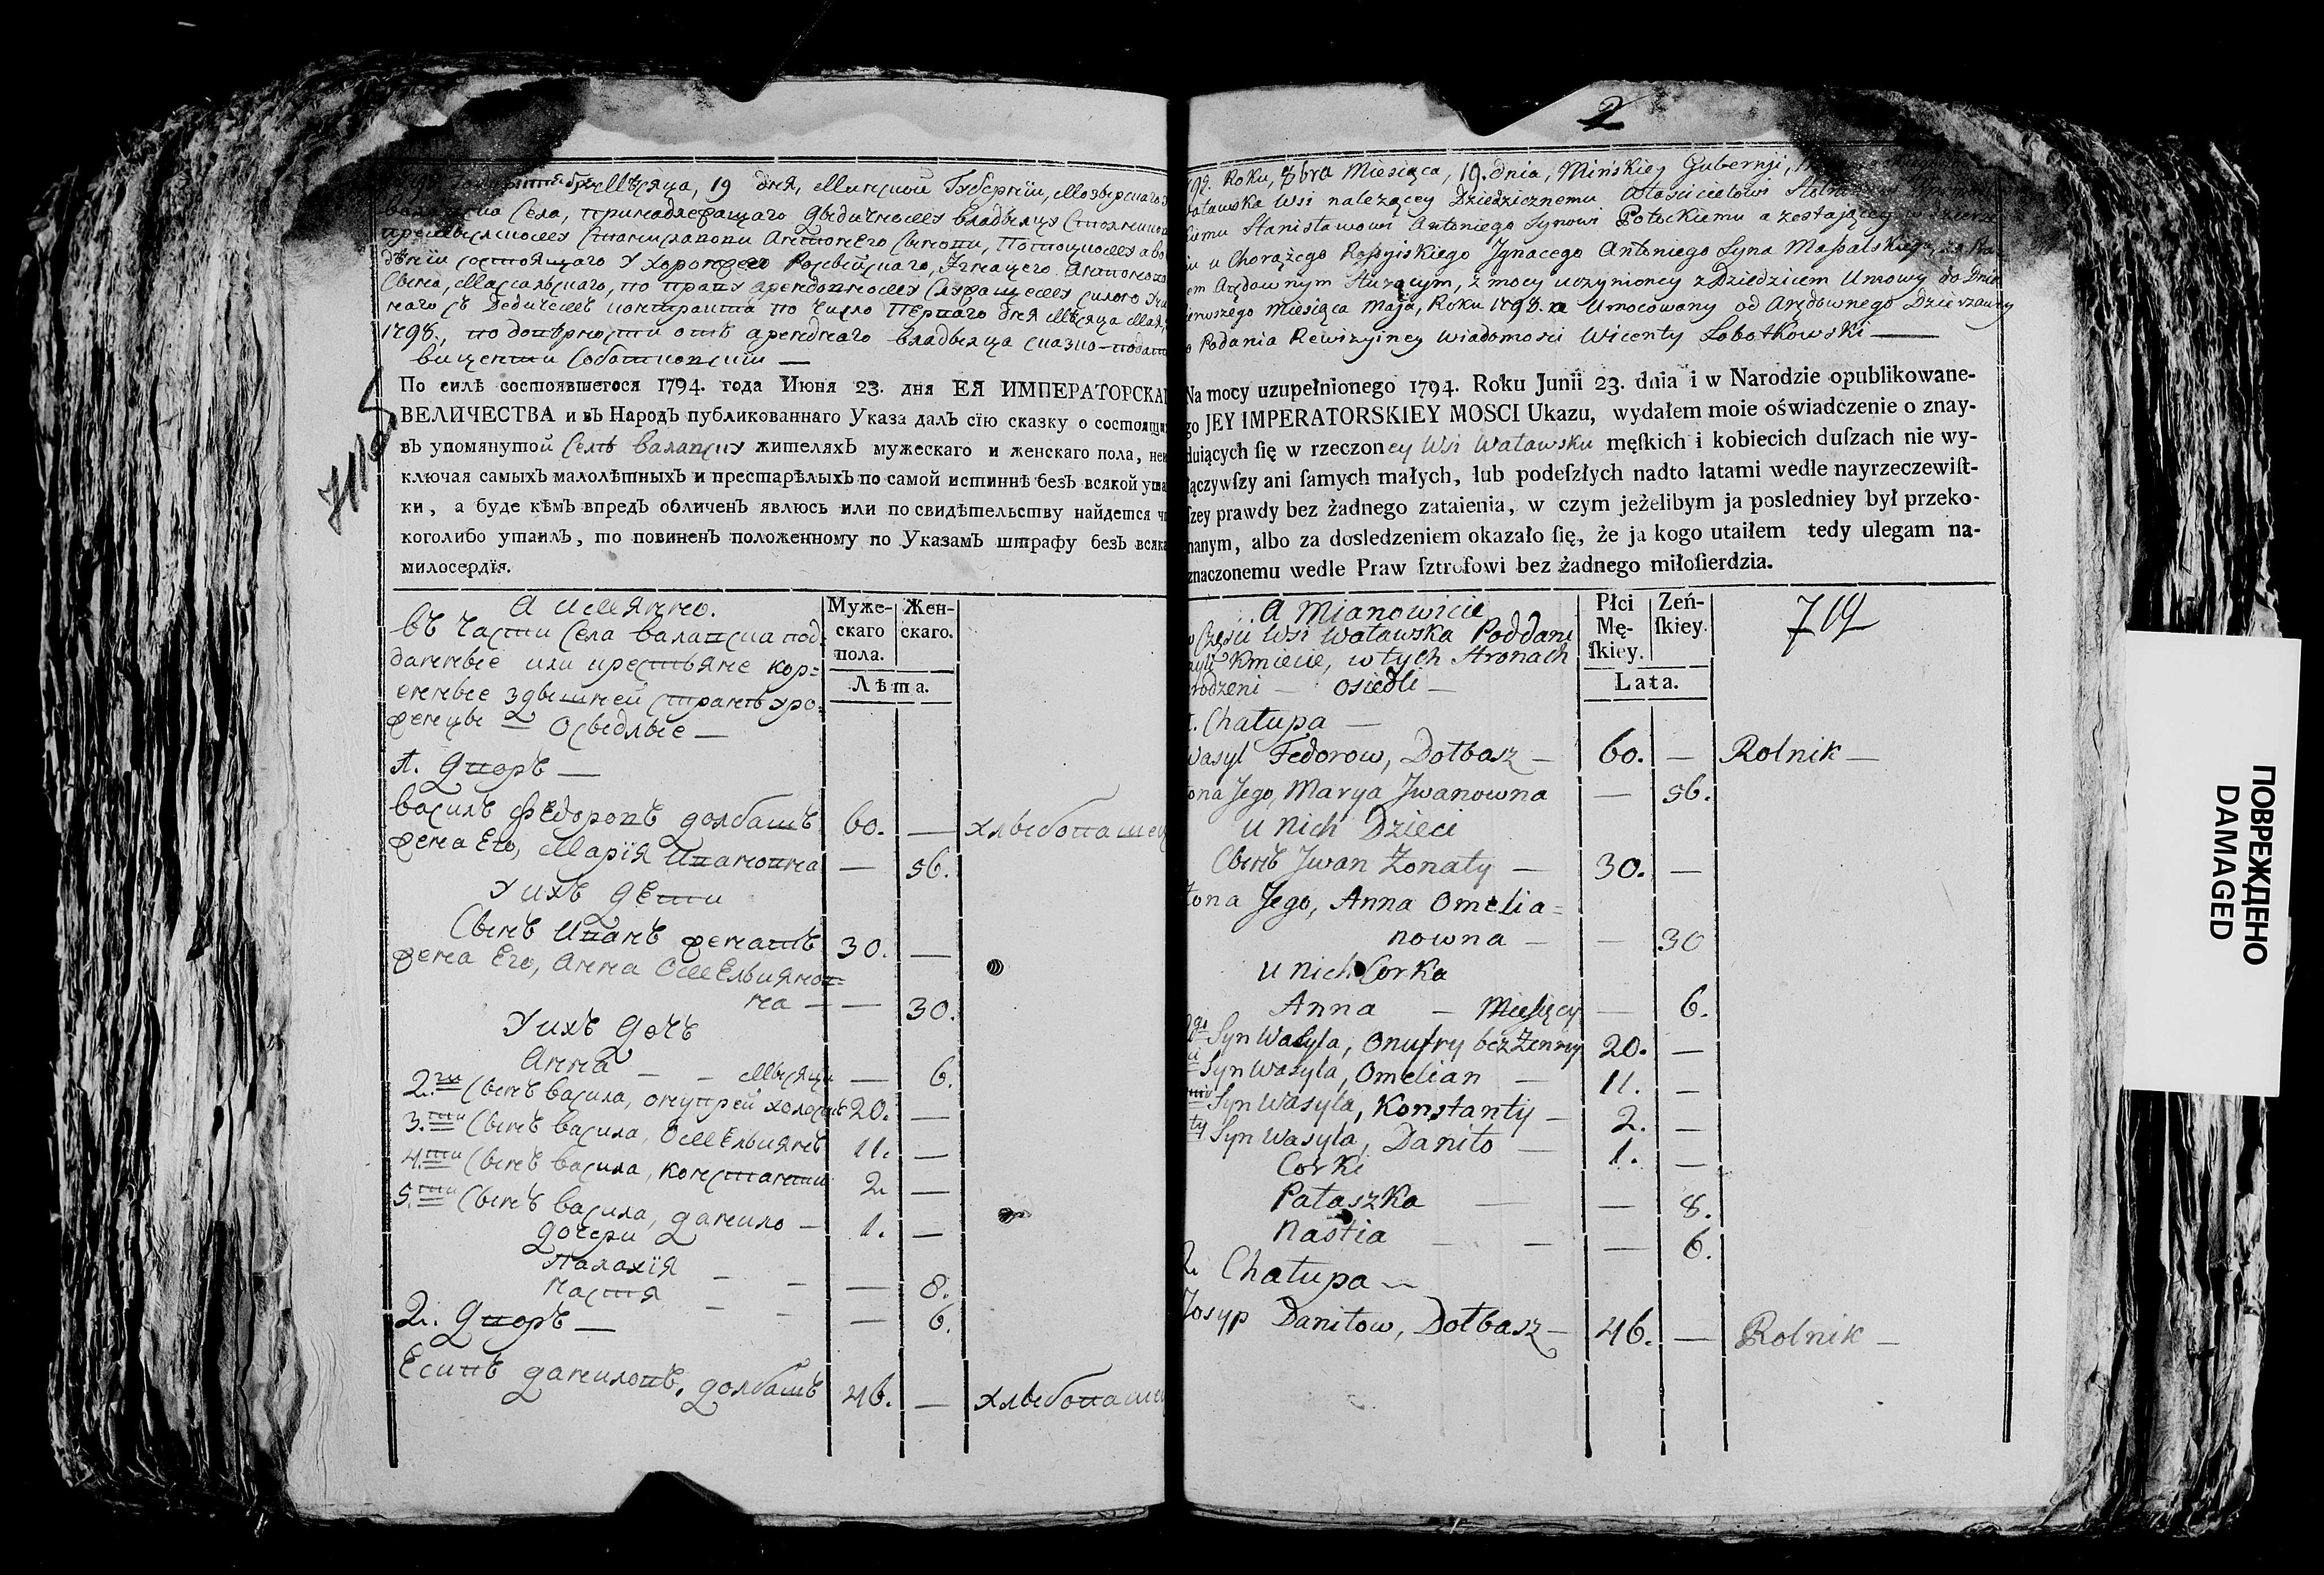 Мѣсяца, 19 дня, Минской Губернїи, Мозырскаго
Села, принадлежащаго дѣдичному владѣльцу
Станиславови Антонего Сынови, Потоцкому а во
дѣнїи состоящаго у хоронжего Росїйскаго, Игнацего Антонова
Сына, Масальскаго, по праву арендовному служащему силою
наго съ Дедичемъ контракта по число Перваго дня мѣсяца Мая,
1798, по довѣрности отъ аренднаго владѣльца сказко-подат
виценти Соботковскїи —
По силѣ состоявшегося 1794. года Июня 23. дня ЕЯ ИМПЕРАТОРСКА
ВЕЛИЧЕСТВА и въ Народъ публикованнаго Указа далъ сїю сказку о состоящи
въ упомянутой Селѣ валавску жителяхъ мужескаго и женскаго пола, не
ключая самыхъ малолѣтныхъ и престарѣлыхъ по самой истиннѣ безъ всякой ута
ки, а буде кѣмъ впредъ обличенъ явлюсь или по свидѣтельству найдется ч
коголибо утаилъ, то повиненъ положенному по Указамъ штрафу безъ всяка
милосердїя.
А имянно.
въ части Села валавска под
данные или крестьяне кор=
енные здѣшней странѣ уро=
женцы — Осѣдлые —
Муже-
скаго
пола.
Жен-
скаго.
Лѣта.
1. Дворъ —
василь Федоровъ долбашъ 60. — хлѣбопашец
жена Его, Марїя Ивановна — 56.
У ихъ дѣти
Сынъ Иванъ женатъ 30. —
жена Его, Анна Омельянов=
на — — 30.
У ихъ дочь
Анна — — Мѣсяцы — 6.
2.гий Сынъ васила, онупрей холостъ 20. —
3.тий Сынъ васила, Омельянъ 11. —
4.тий Сынъ васила, константи 2. —
5.тий Сынъ васила, данило — 1. —
дочери
Палахїя — — — 8.
настя — — — 6.
2. Дворъ —
Есипъ даниловъ, долбашъ 46. — хлѣбопашец
2
Roku, 8bra Miesiąca, 19. dnia, Mińskiey Gubernji,
Wsi należącey Dziedzicznemu Właścicielowi
Stanisławowi Antoniego Synowi Potockiemu a zostającey
u Chorążego Rossyiskiego Jgnacego Antoniego Syna Massalskiego,
Arędownym służącym, z mocy uczynioney z Dziedzicem Umowy do Dnia
pierwszego Miesiąca Maja, Roku 1798. a Umocowany od Arędownego Dzierżawcy
Podania Rewizyiney wiadomości Wicenty Sobotkowski —
Na mocy uzupełnionego 1794. Roku Junii 23. dnia i w Narodzie opublikowane-
go JEY IMPERATORSKIEY MOSCI Ukazu, wydałem moie oświadczenie o znay-
duiących ſię w rzeczoney Wsi Waławsku męſkich i kobiecich duſzach nie wy-
łączywſzy ani ſamych małych, lub podeſzłych nadto latami wedle nayrzeczewiſt-
ſzey prawdy bez żadnego zataienia, w czym jeżelibym ja posledniey był przeko-
nanym, albo za dosledzeniem okazało ſię, że ja kogo utaiłem tedy ulegam na-
znaczonemu wedle Praw ſztrofowi bez żadnego miłoſierdzia.
A Mianowicie
w Części Wsi Waławska Poddani
Kmiecie, w tych Stronach
rodzeni — osiedli —
Płci
Mę-
ſkiey.
Zeń-
ſkiey.
Lata.
719
1. Chałupa —
Wasyl Fedorow, Dołbasz — 60. — Rolnik —
żona Jego, Marya Jwanowna — 56.
u nich Dzieci
Сынъ Jwan Żonaty — 30. —
żona Jego, Anna Omelia=
nowna — — 30
u nich Corka
Anna — Miesięcy — 6.
2gi Syn Wasyla, Onufry bez Żenny 20. —
Syn Wasyla, Omelian — 11. —
Syn Wasyla, Konstanty — 2. —
ty Syn Wasyla, Daniło — 1. —
Corki
Pałaszka — — 8.
Nastia — — — 6.
2. Chałupa —
Josyp Daniłow, Dołbasz — 46. — Rolnik —
ПОВРЕЖДЕНО
DAMAGED